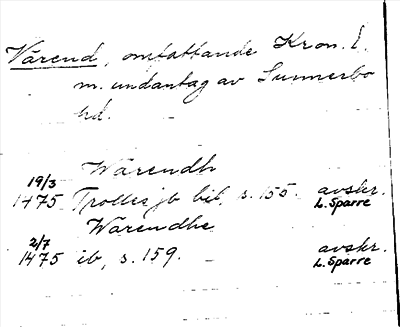 Värend, omfattande Kron. l.
m. undantag av Sunnerbo
hd.
Wärendh
19/3
1475 Trolles jb bil, s. 155. avskr.
L. Sparre
Warendhe
2/7
1475 ib, s. 159. avskr.
L. Sparre